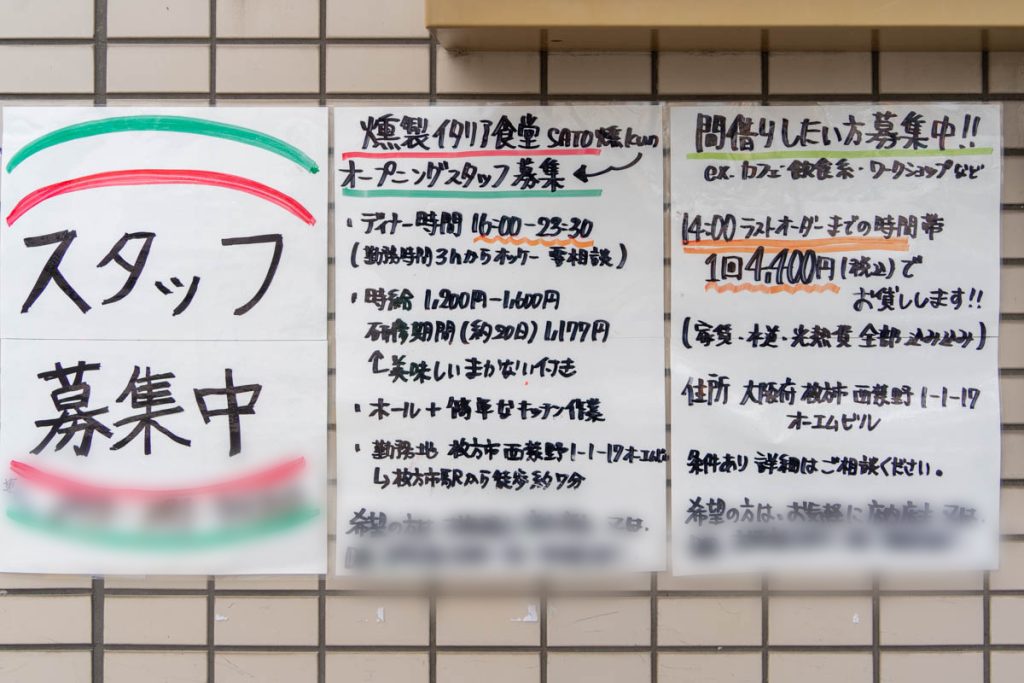 スタッフ
募集中
燻製イタリア食堂 SATO燻kun
オープニングスタッフ募集
・ディナー時間 16:00-23:30
(勤務時間3hからオッケー 要相談)
・時給 1,200円-1,600円
研修期間(約20日)1,177円
↑美味しいまかない付き
・ホール+簡単なキッチン作業
・勤務地 枚方市西禁野1-1-17オーエムビル
↳枚方市駅から徒歩約7分
希望の方は
又は、
間借りしたい方募集中!!
ex.カフェ 飲食系・ワークショップなど
14:00ラストオーダーまでの時間帯
1回4,400円(税込)で
お貸しします!!
(家賃・水道・光熱費全部込み込み)
住所 大阪府枚方市西禁野1-1-17
オーエムビル
条件あり 詳細はご相談ください。
希望の方は、お気軽に
又は、